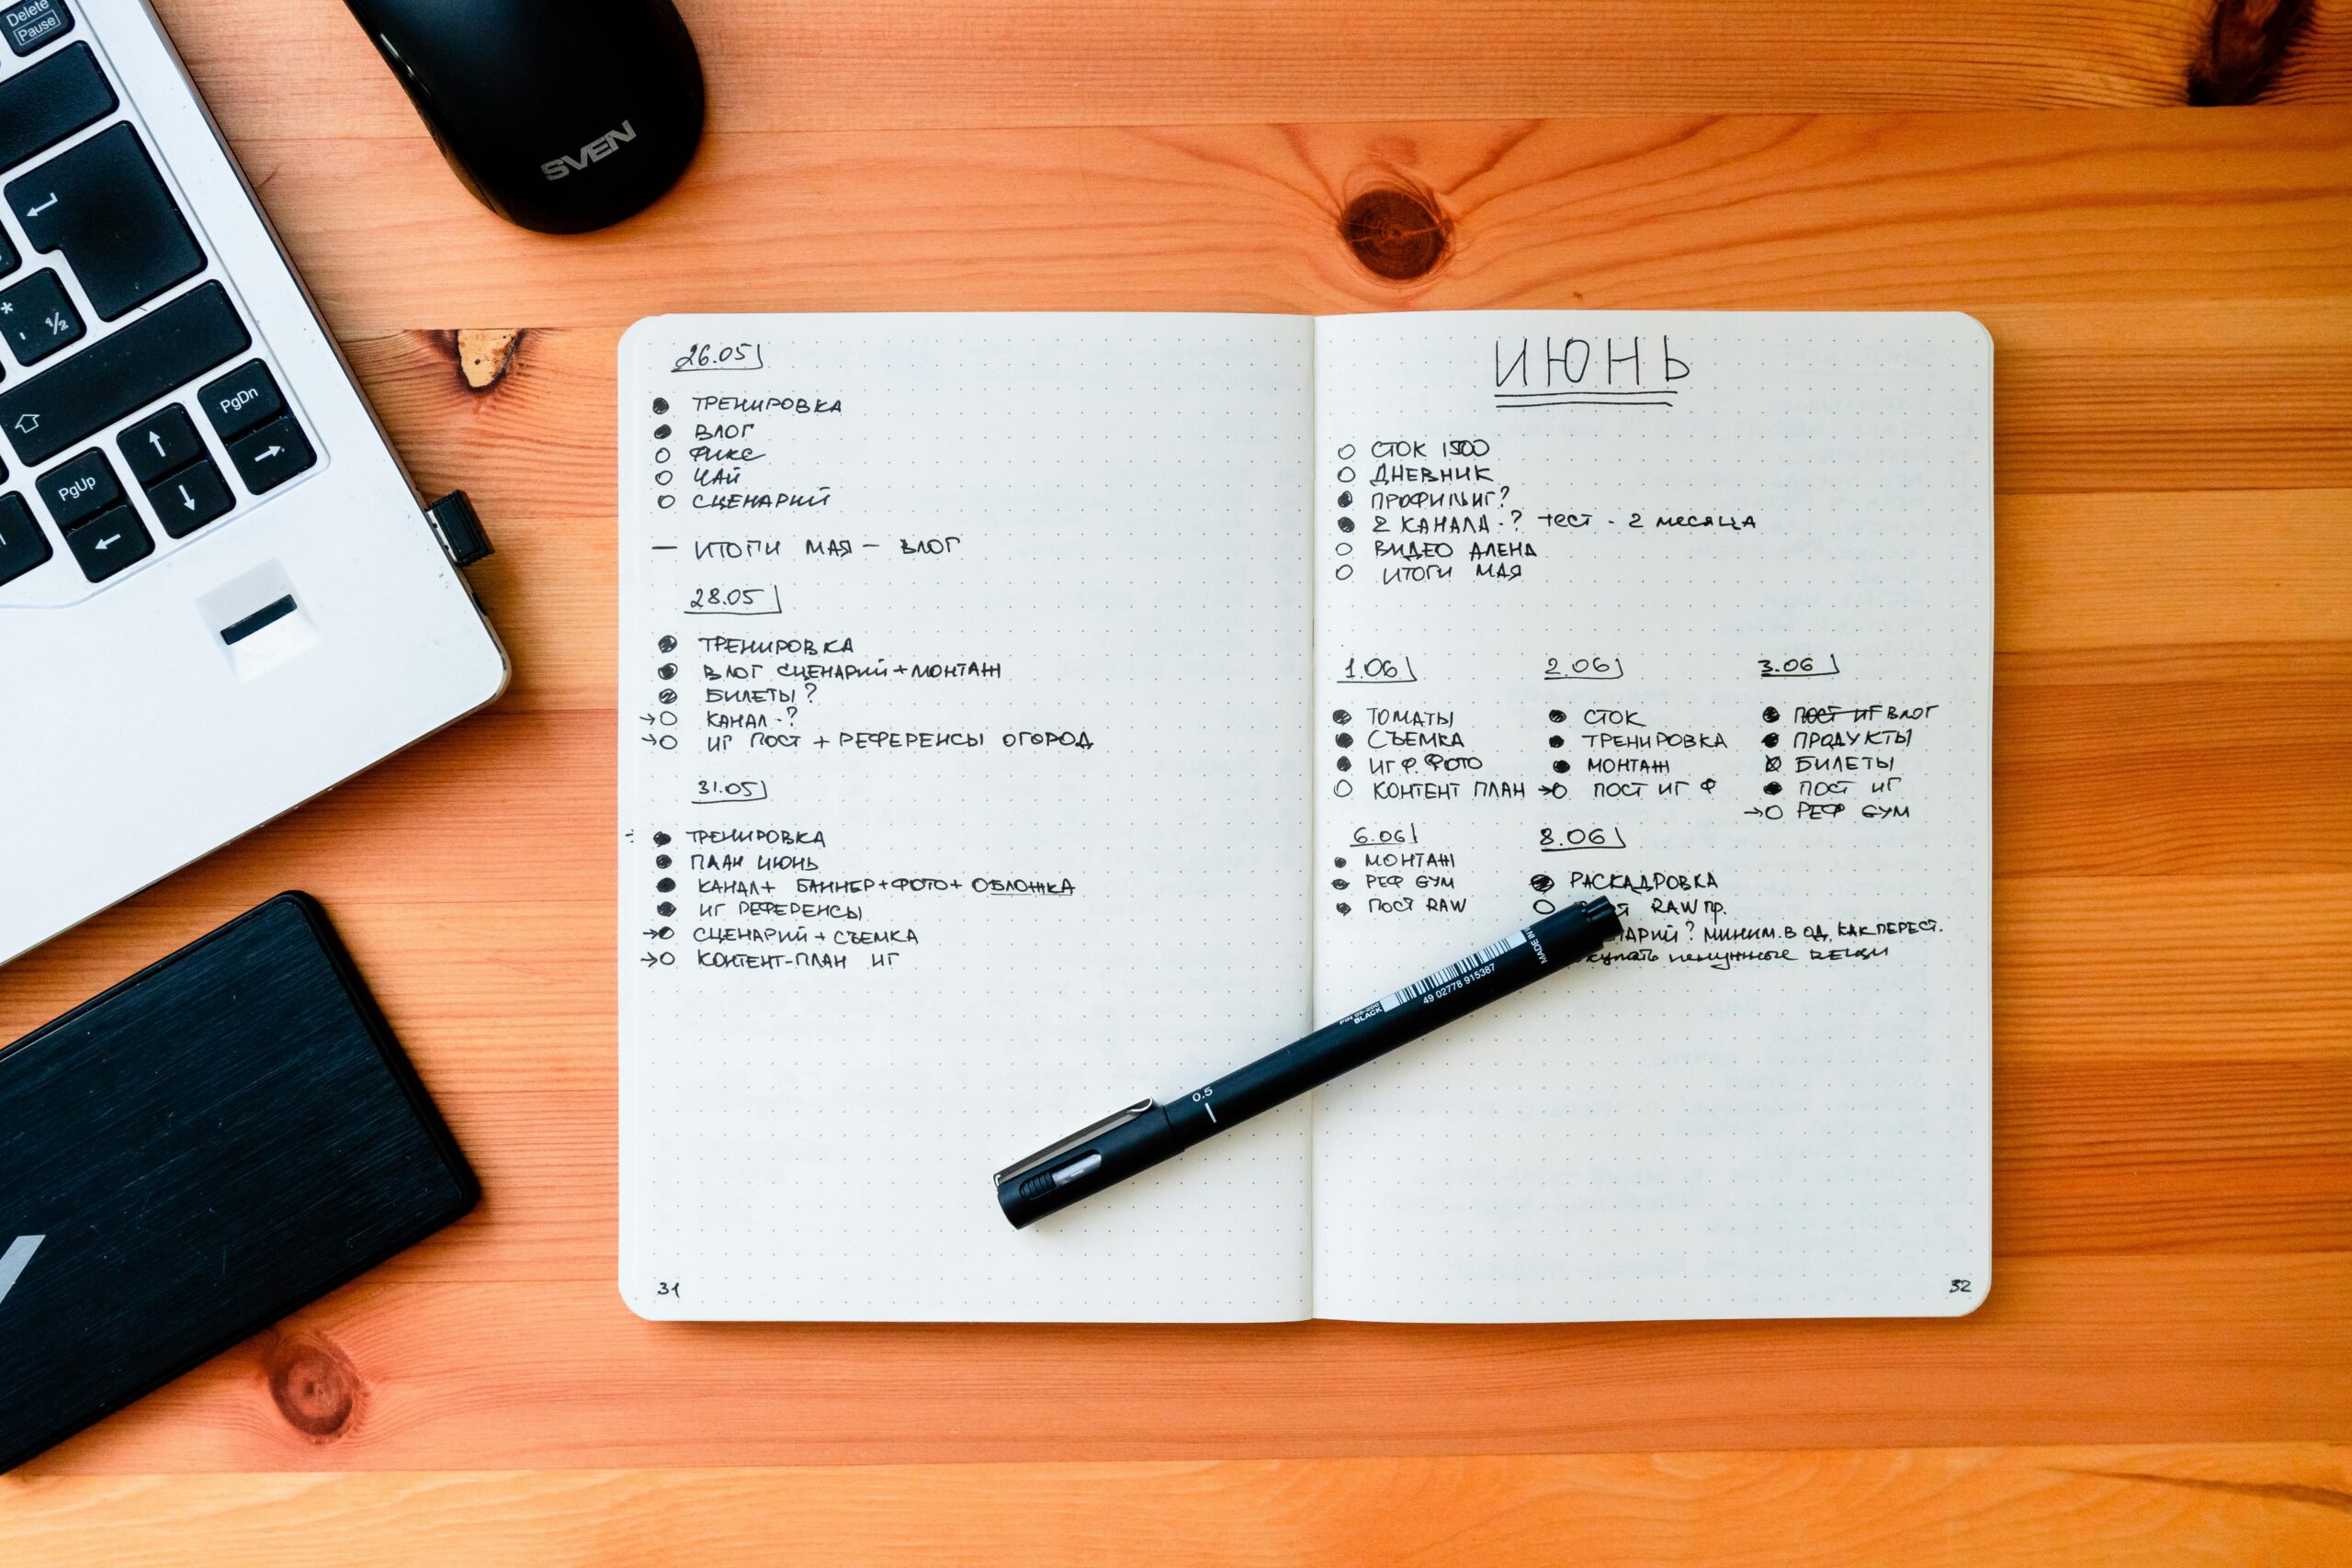 Delete
Pause
* 1/2
'
PgDn
PgUp
SVEN
26.05
ТРЕНИРОВКА
ВЛОГ
ФИКС
ЧАЙ
СЦЕНАРИЙ
— ИТОГИ МАЯ – ВЛОГ
28.05
ТРЕНИРОВКА
ВЛОГ СЦЕНАРИЙ+МОНТАЖ
БИЛЕТЫ?
→ КАНАЛ-?
→ ИГ ПОСТ + РЕФЕРЕНСЫ ОГОРОД
31.05
ТРЕНИРОВКА
ПЛАН ИЮНЬ
КАНАЛ+ БАННЕР+ФОТО+ ОБЛОЖКА
ИГ РЕФЕРЕНСЫ
→ СЦЕНАРИЙ + СЪЕМКА
→ КОНТЕНТ-ПЛАН ИГ
31
ИЮНЬ
СТОК 1500
ДНЕВНИК
ПРОФИЛЬ ИГ?
2 КАНАЛА-? тест - 2 месяца
ВИДЕО АЛЕНА
ИТОГИ МАЯ
1.06
ТОМАТЫ
СЪЕМКА
ИГ Ф. ФОТО
КОНТЕНТ ПЛАН
2.06
СТОК
ТРЕНИРОВКА
МОНТАЖ
→ ПОСТ ИГ Ф
3.06
ПОСТ ИГ ВЛОГ
ПРОДУКТЫ
БИЛЕТЫ
ПОСТ ИГ
→ РЕФ GYM
6.06
МОНТАЖ
РЕФ GYM
ПОСТ RAW
8.06
РАСКАДРОВКА
RAW пр.
? МИНИМ. В ОД. КАК ПЕРЕСТ.
ненужные вещи
32
MADE IN
49 02778 915387
BLACK
0.5